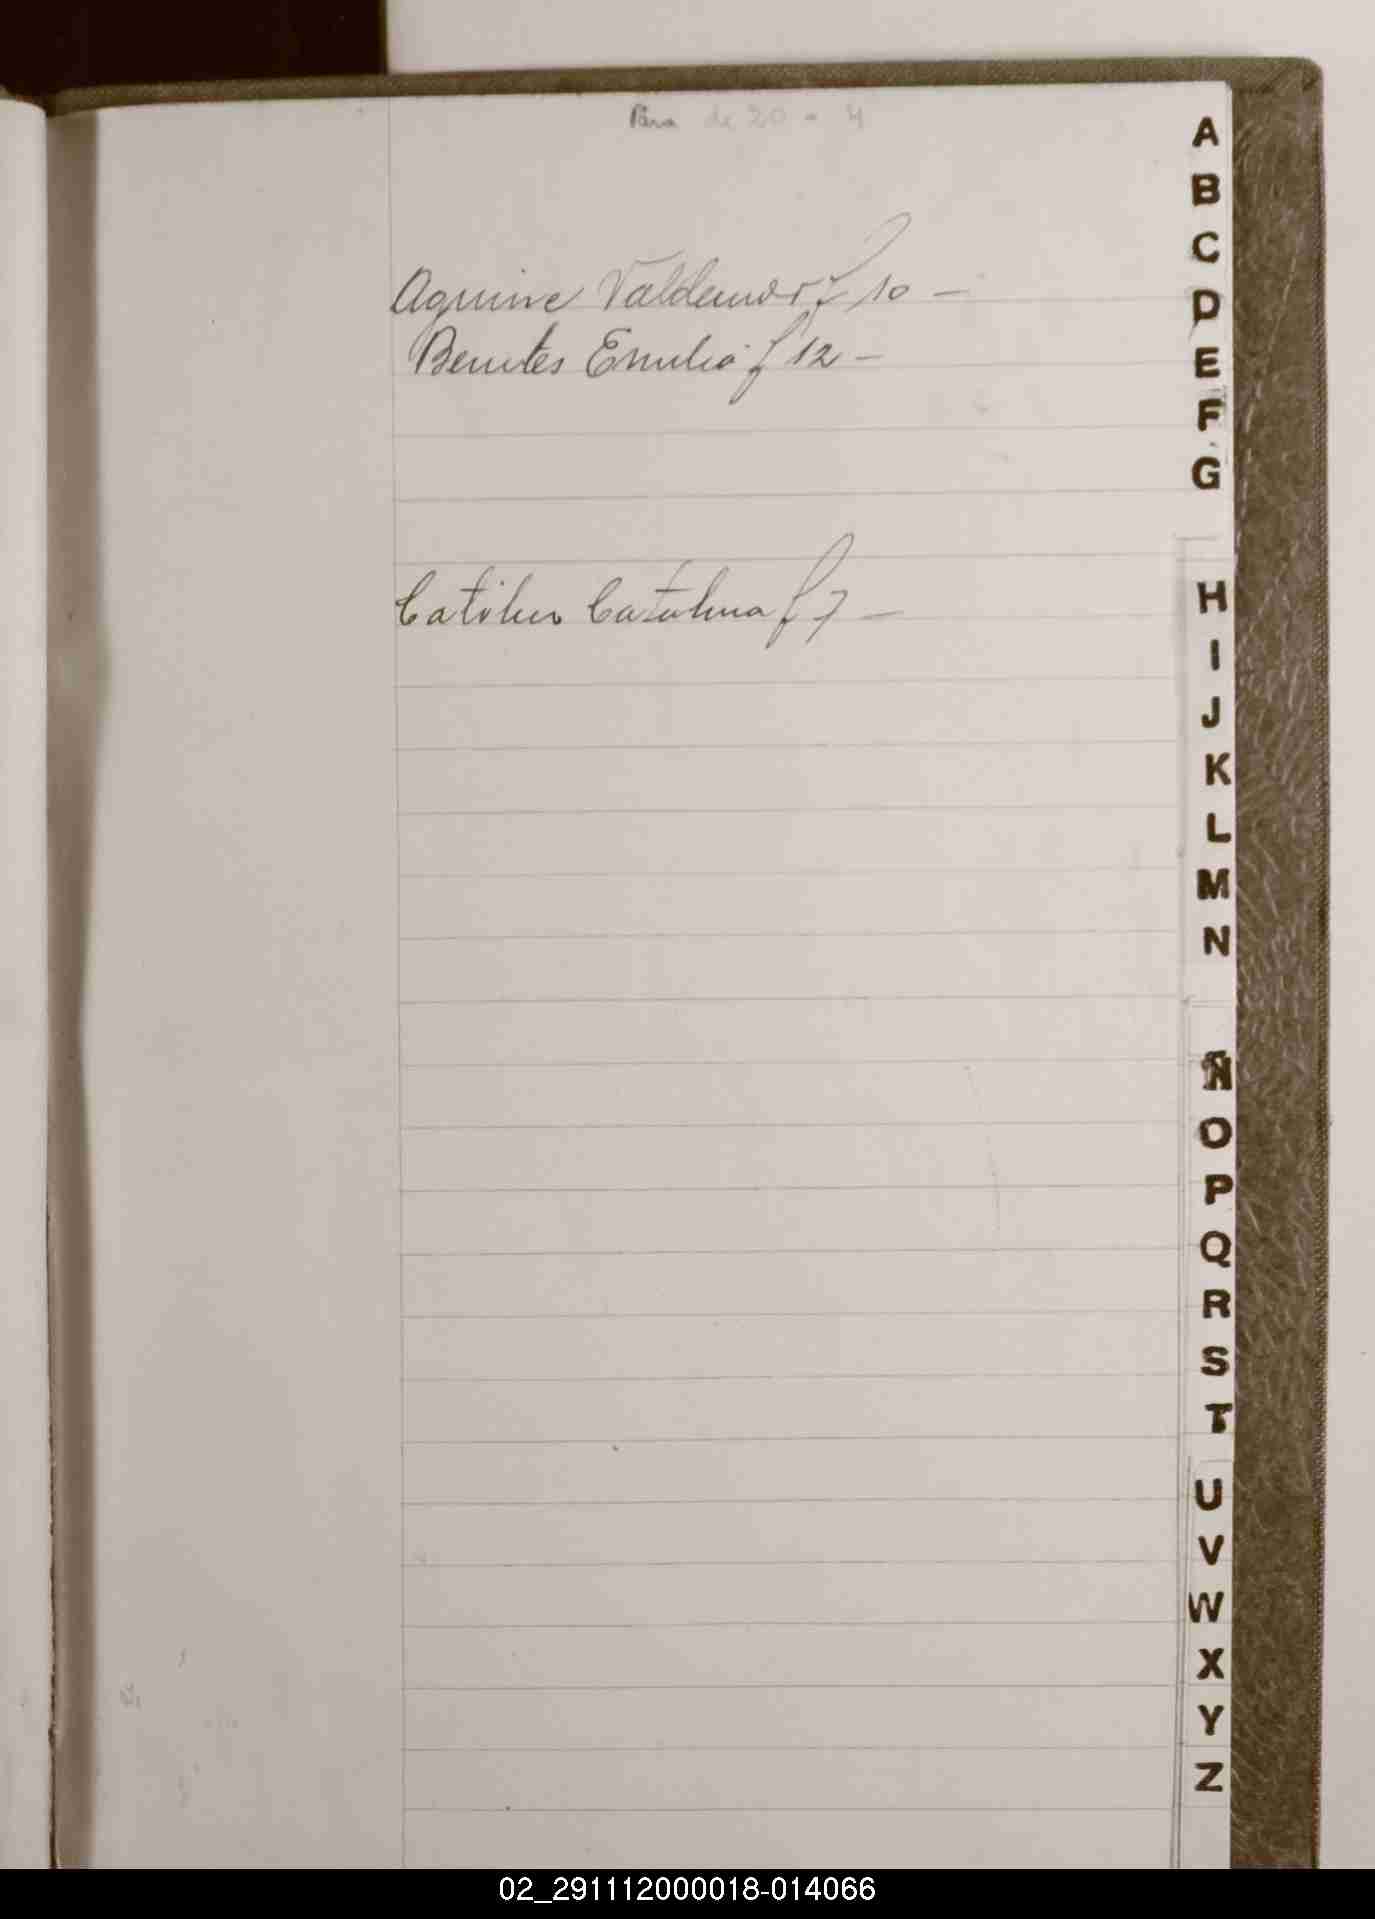 Para de 20 - 4
Aguirre Valdemar f 10 -
Benites Emilio f 12 -
Catalina f 7 -
A
B
C
D
E
F
G
H
I
J
K
L
M
N
Ñ
O
P
Q
R
S
T
U
V
W
X
Y
Z
02_291112000018-014066